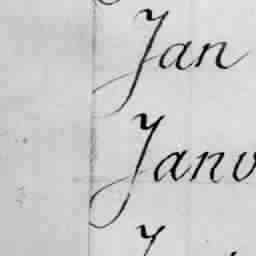 Jan
Janv